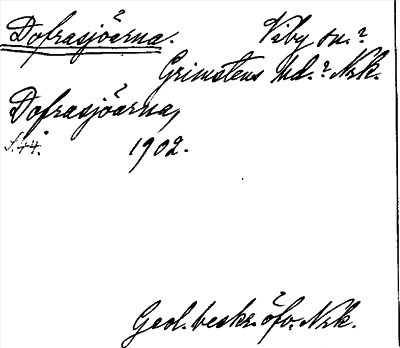 Dofrasjöarna. Viby sn.?
Grimstens hd.? Nrk.
Dofrasjöarna,
s. 44. 1902.
Geol. beskr. öfv. Nrk.